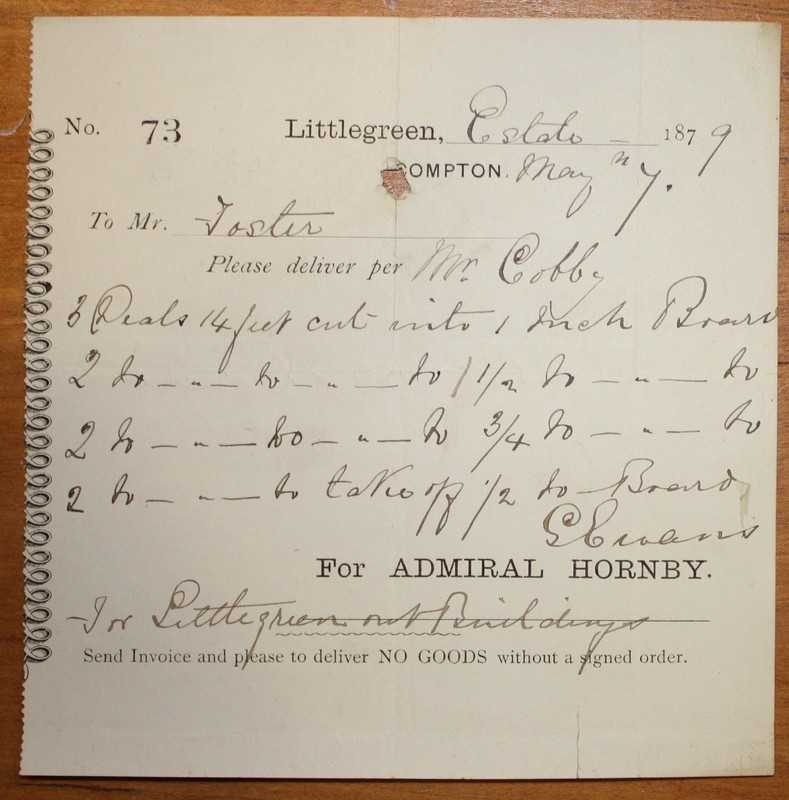 No. 73 Littlegreen, Estate 1879
COMPTON. May 7.
To Mr. Foster
Please deliver per Mr Cobby
3 Deals 14 feet cut into 1 Inch Board
2 do — " — do — " — do 1 1/2 do — " — do
2 do — " — do — " — do 3/4 do — " — do
2 do — " — do take off 1/2 do Board
G Evans
For ADMIRAL HORNBY.
For Littlegreen out Buildings
Send Invoice and please to deliver NO GOODS without a signed order.